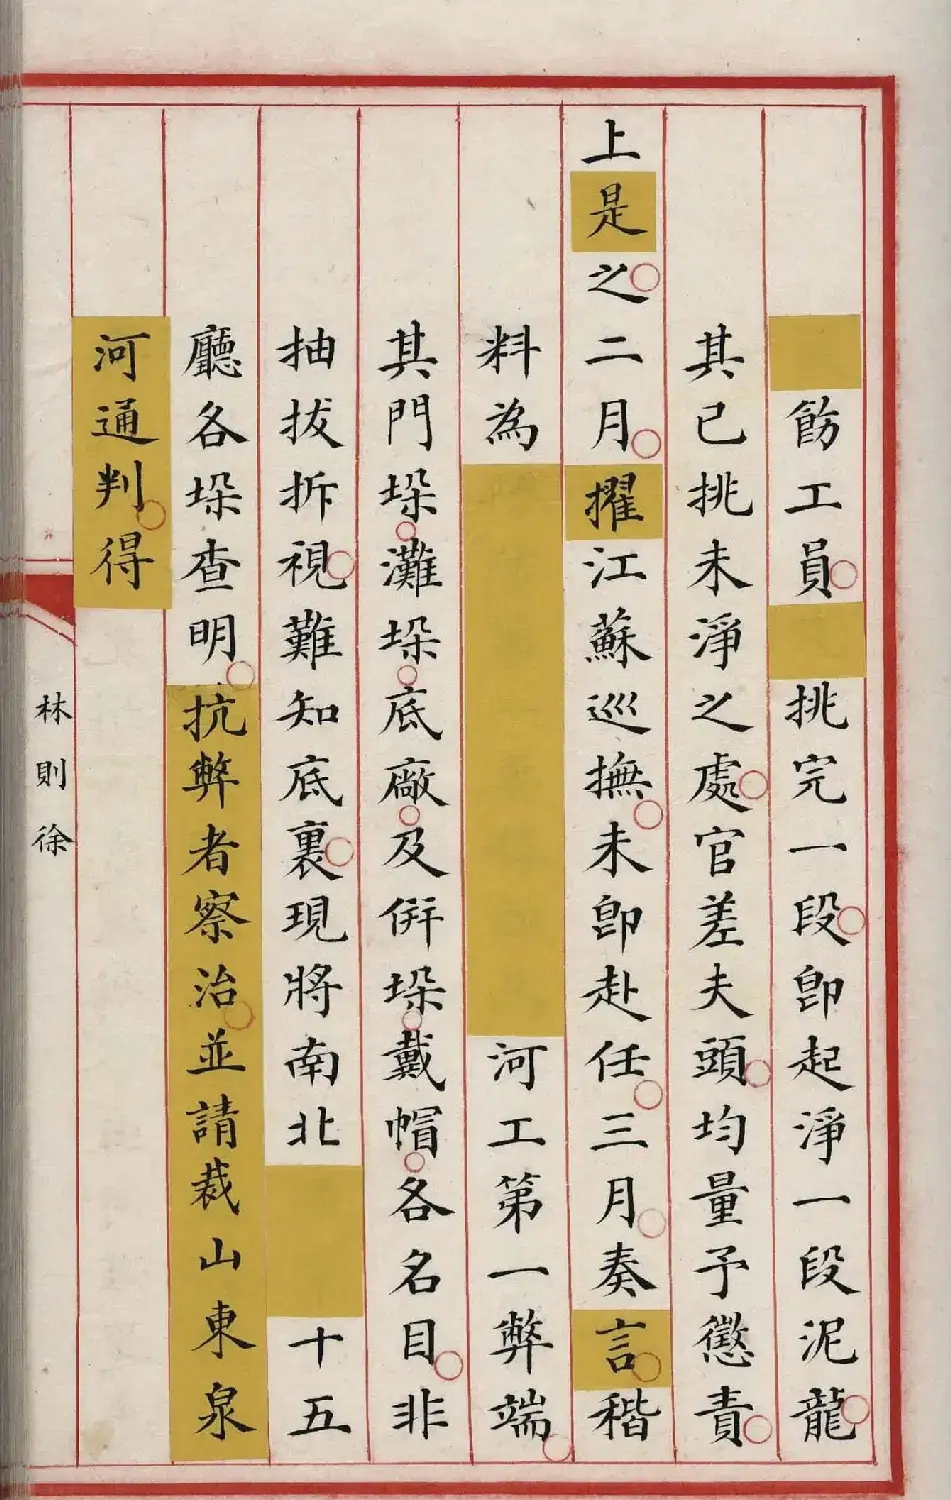 飭工員挑完一段卽起淨一段泥龍
其已挑未淨之處官差夫頭均量予懲責
上是之二月擢江蘇巡撫未卽赴任三月奏言稭
料為河工第一弊端
其門垛灘垛底廠及倂垛戴帽各名目非
抽拔拆視難知底裏現將南北十五
廳各垛查明抗弊者察治並請裁山東泉
河通判得
林則徐